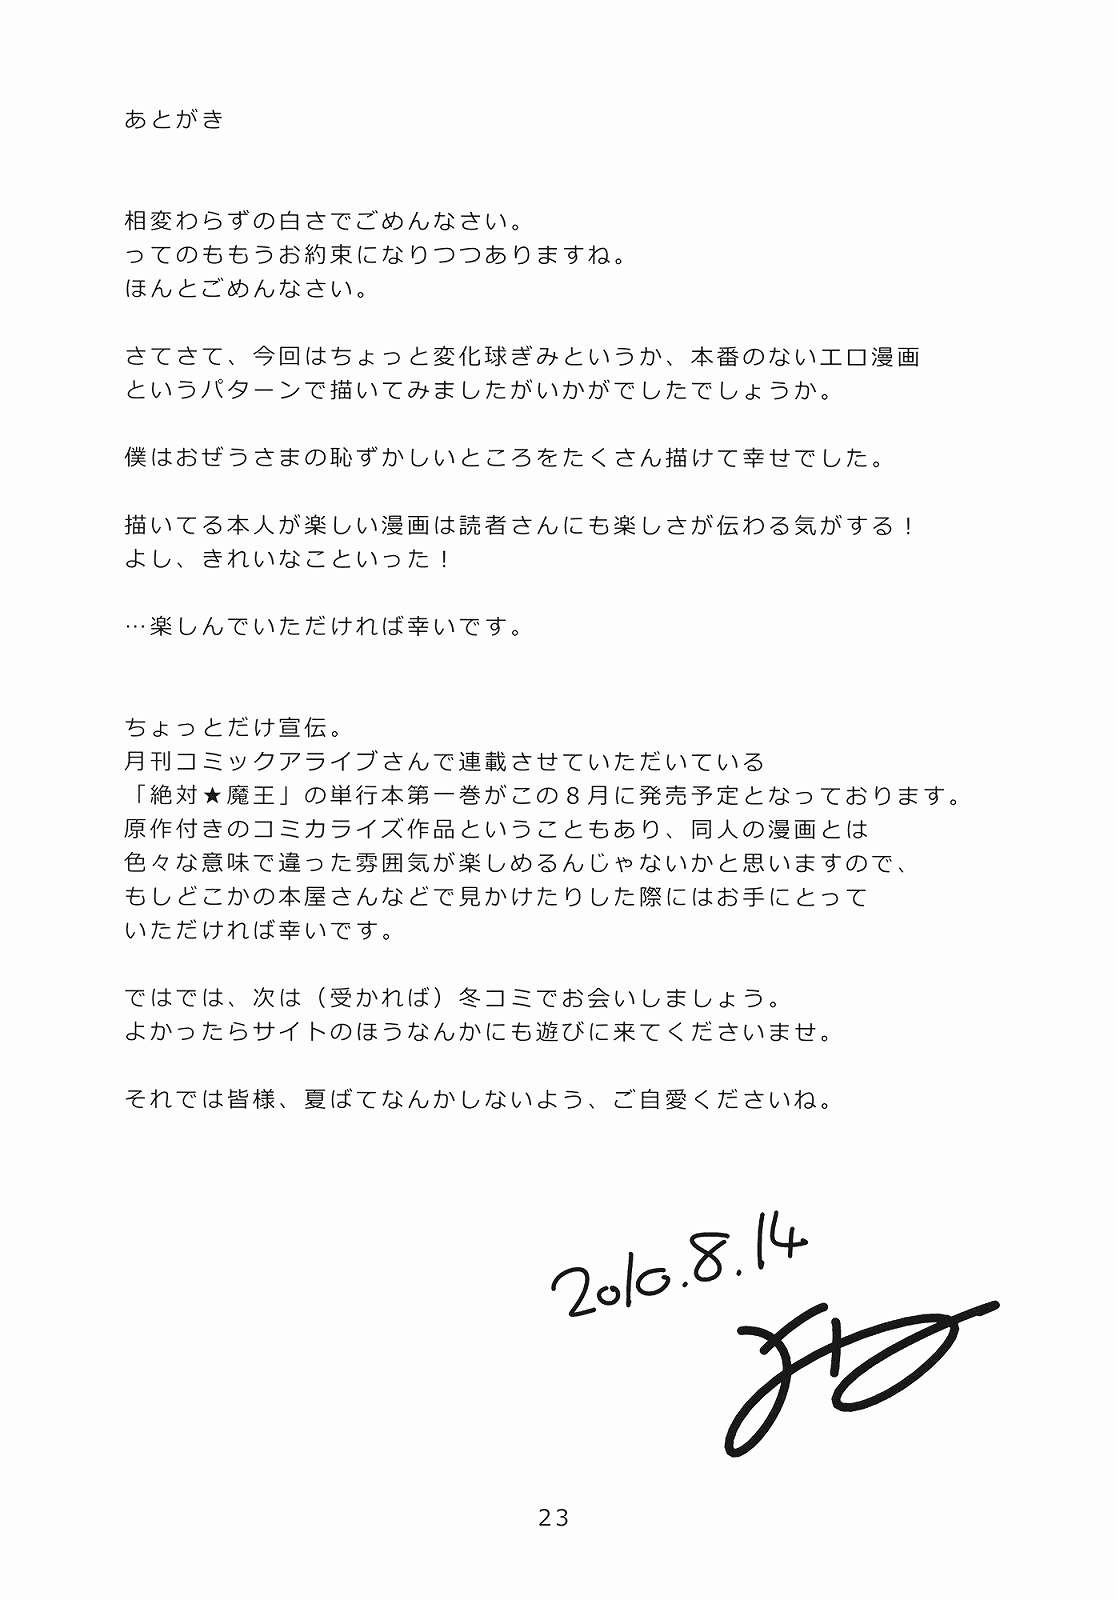 あとがき
相変わらずの白さでごめんなさい。
ってのももうお約束になりつつありますね。
ほんとごめんなさい。
さてさて、今回はちょっと変化球ぎみというか、本番のないエロ漫画
というパターンで描いてみましたがいかがでしたでしょうか。
僕はおぜうさまの恥ずかしいところをたくさん描けて幸せでした。
描いてる本人が楽しい漫画は読者さんにも楽しさが伝わる気がする！
よし、きれいなこといった！
…楽しんでいただければ幸いです。
ちょっとだけ宣伝。
月刊コミックアライブさんで連載させていただいている
「絶対★魔王」の単行本第一巻がこの８月に発売予定となっております。
原作付きのコミカライズ作品ということもあり、同人の漫画とは
色々な意味で違った雰囲気が楽しめるんじゃないかと思いますので、
もしどこかの本屋さんなどで見かけたりした際にはお手にとって
いただければ幸いです。
ではでは、次は（受かれば）冬コミでお会いしましょう。
よかったらサイトのほうなんかにも遊びに来てくださいませ。
それでは皆様、夏ばてなんかしないよう、ご自愛くださいね。
2010.8.14
23